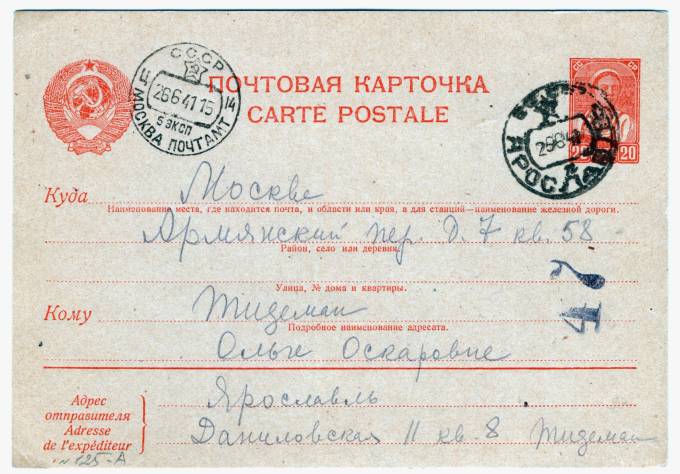 СССР
26641 15
5 эксп
МОСКВА ПОЧТАМТ
ПОЧТОВАЯ КАРТОЧКА
CARTE POSTALE
20
Куда
Москве
Наименование места, где находится почта, и области или края, а для станций—наименование железной дороги.
Армянский пер. д. 7 кв. 58
Район, село или деревня.
Улица, № дома и квартиры.
47
Кому
Тидеман
Подробное наименование адресата.
Ольге Оскаровне
Адрес
отправителя
Adresse
de l'expéditeur
Ярославль
Даниловская 11 кв. 8 Тидеман
№125-А